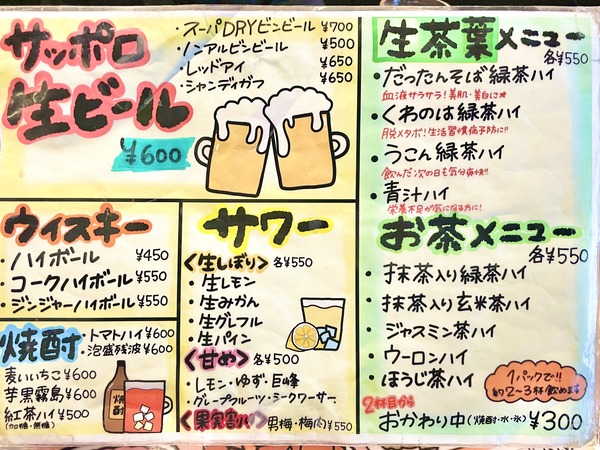 サッポロ
生ビール
¥600
・スーパDRYビンビール ¥700
・ノンアルビンビール ¥500
・レッドアイ ¥650
・シャンディガフ ¥650
ウィスキー
・ハイボール ¥450
・コークハイボール ¥550
・ジンジャーハイボール ¥550
焼酎
・トマトハイ ¥600
・泡盛残波 ¥600
麦いいちこ ¥600
芋黒霧島 ¥600
紅茶ハイ ¥500
(加糖・無糖)
焼酎
サワー
<生しぼり> 各¥550
・生レモン
・生みかん
・生グレフル
・生パイン
<甘め> 各¥500
・レモン・ゆず・巨峰
・グレープフルーツ・シークワーサー
<果実割り> 男梅・梅肉 ¥550
生茶葉メニュー
各¥550
・だったんそば緑茶ハイ
血液サラサラ!美肌・美白に☆
・くわのは緑茶ハイ
脱メタボ!生活習慣病予防に!!
・うこん緑茶ハイ
飲んだ次の日も気分爽快!!
・青汁ハイ
栄養不足が気になる方に!
お茶メニュー
各¥550
・抹茶入り緑茶ハイ
・抹茶入り玄米茶ハイ
・ジャスミン茶ハイ
・ウーロンハイ
・ほうじ茶ハイ
1パックで!!
約2~3杯飲めます
2杯目から
おかわり中(焼酎・水・氷) ¥300